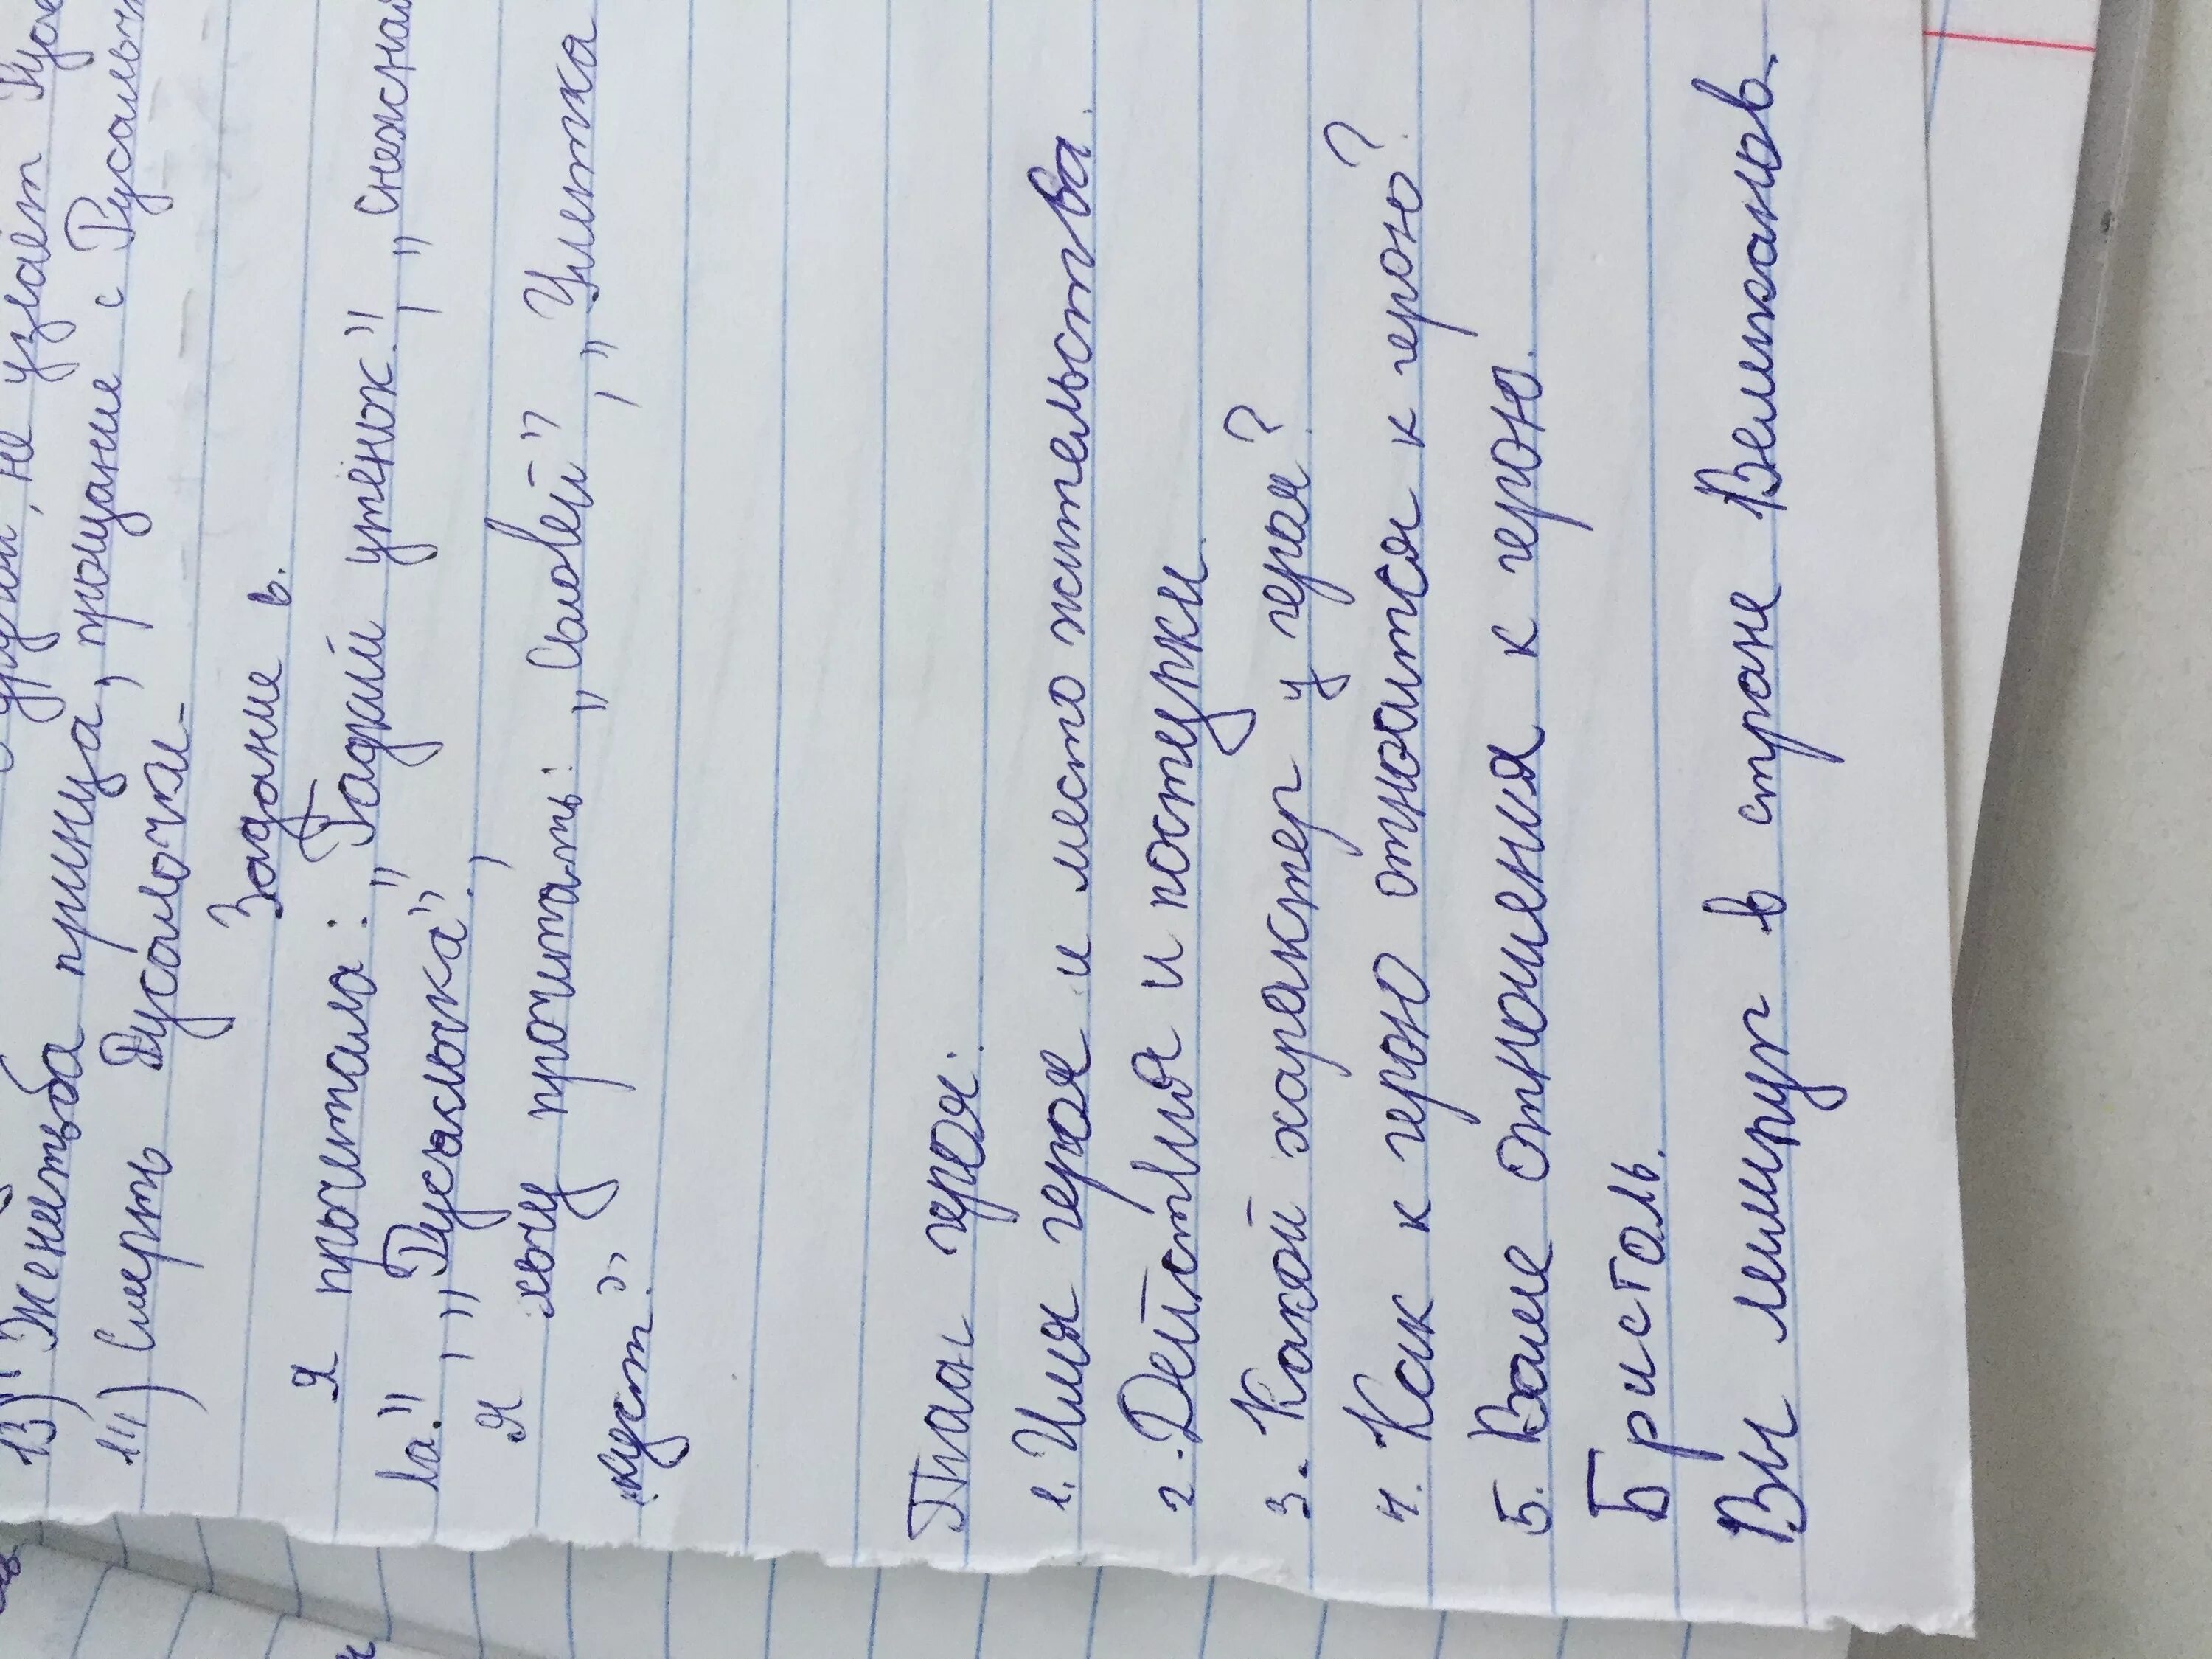 не узнаёт
13) Женитьба принца, прощание с Русалоч
14) Смерть Русалочки.
Задание в.
Я прочитала: „Гадкий утёнок", „Снежная
ла", „Русалочка".
Я хочу прочитать: „Соловей", „Улитка
куст."
План героя:
1. Имя героя и место жительства.
2. Действия и поступки.
3. Какой характер у героя?
4. Как к герою относится к герою?
5. Ваше отношения к герою.
Бристоль.
Вы лилипут в стране Великанов.